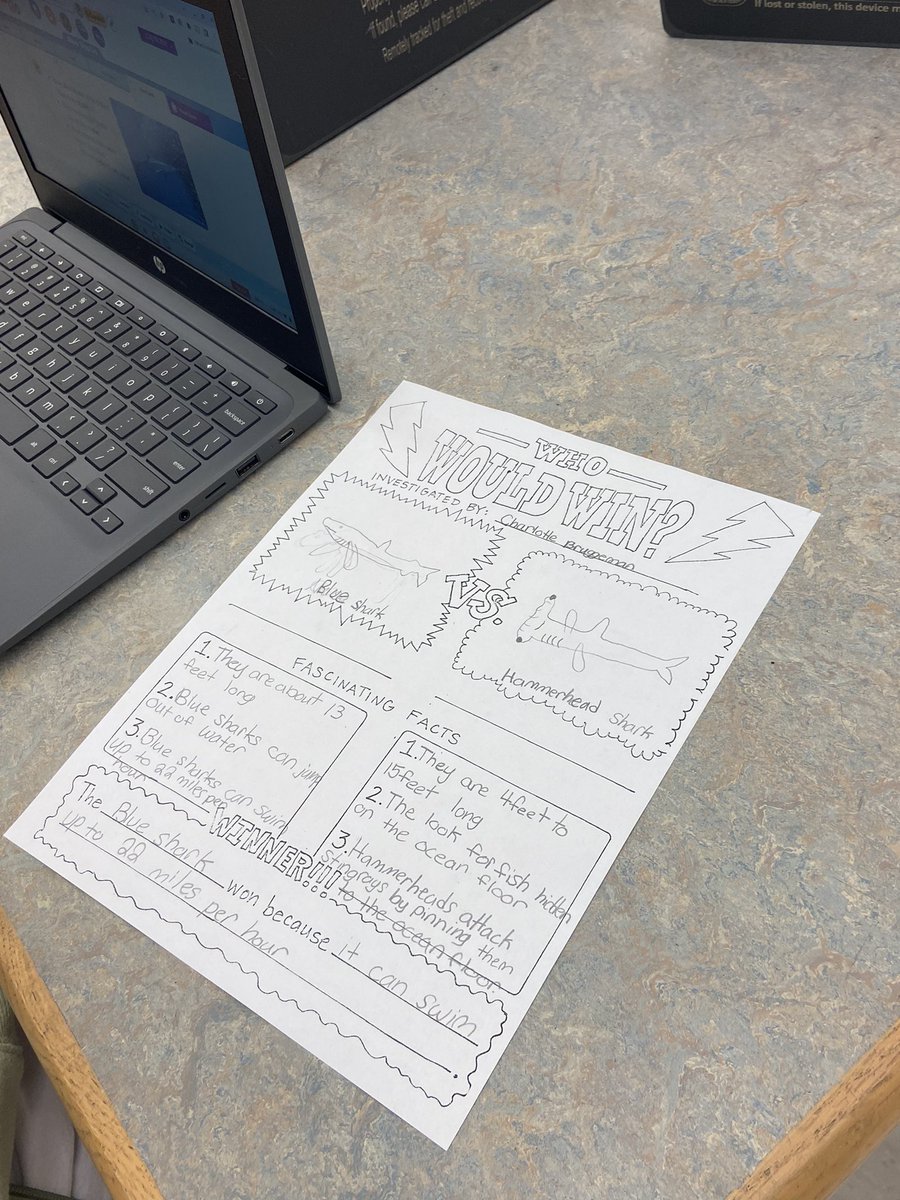 If lost or stolen, this device m
Remotely tracked for theft and
hp
backspace
enter
shift
alt
ctrl
WHO
WOULD WIN?
INVESTIGATED BY: Charlotte Bruggeman
Blue shark
VS.
Hammerhead shark
FASCINATING FACTS
1. They are about 13
feet long
2. Blue sharks can jump
out of water
3. Blue sharks can swim
up to 22 miles per
hour
1. They are 4feet to
15feet long
2. The look for fish hidden
on the ocean floor
3. Hammerheads attack
stingrays by pinning them
to the ocean floor
WINNER!!!
The Blue shark won because it can swim
up to 22 miles per hour.